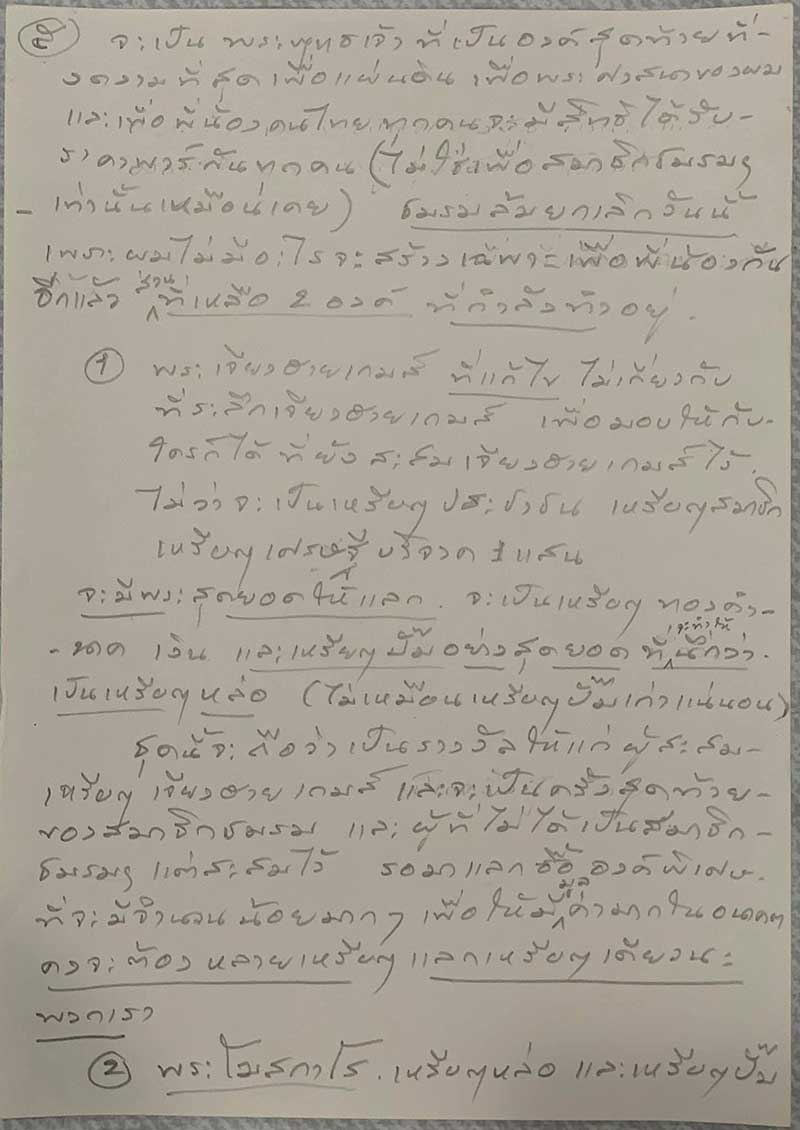 ๕ จะเป็น พระพุทธเจ้า ที่เป็นองค์สุดท้ายที่-
งดงามที่สุดเพื่อแผ่นดิน เพื่อพระศาสนาของผม
และเพื่อพี่น้องคนไทย ทุกคนจะมีสิทธิได้รับ-
ราคาพาร์กันทุกคน (ไม่ใช่เพื่อสมาชิกชมรมฯ
- เท่านั้นเหมือนเคย) ชมรมล้มยกเลิกวันนี้
เพราะผมไม่มีอะไรจะสร้างเฉพาะเพื่อพี่น้องกัน
อีกแล้ว ส่วนที่เหลือ 2 องค์ ที่กำลังทำอยู่.
1 พระเจียงฮายเกมส์ ที่แก้ไข ไม่เกี่ยวกับ
ที่ระลึกเจียงฮายเกมส์ เพื่อมอบให้กับ-
ใครก็ได้ ที่ยังสะสมเจียงฮายเกมส์ไว้.
ไม่ว่าจะเป็นเหรียญประชาชน เหรียญสมาชิก
เหรียญเศรษฐีบริจาค 1 แสน
จะมีพระสุดยอดให้แลก. จะเป็นเหรียญ ทองคำ-
- นาค เงิน และเหรียญปั๊มอย่างสุดยอด ที่จะทำให้นึกว่า.
เป็นเหรียญหล่อ (ไม่เหมือนเหรียญปั๊มเก่าแน่นอน)
ชุดนี้จะถือว่าเป็นรางวัลให้แก่ผู้สะสม-
เหรียญเจียงฮายเกมส์ และจะเป็นครั้งสุดท้าย-
ของสมาชิกชมรม และ ผู้ที่ไม่ได้เป็นสมาชิก-
ชมรมฯ แต่สะสมไว้ รอมาแลกซื้อองค์พิเศษ.
ที่จะมีจำนวนน้อยมากๆ เพื่อให้มีมูลค่ามากในอนาคต
คงจะต้องหลายเหรียญแลกเหรียญเดียวนะ
พวกเรา
2 พระโมสการ์โร. เหรียญหล่อ และเหรียญปั๊ม